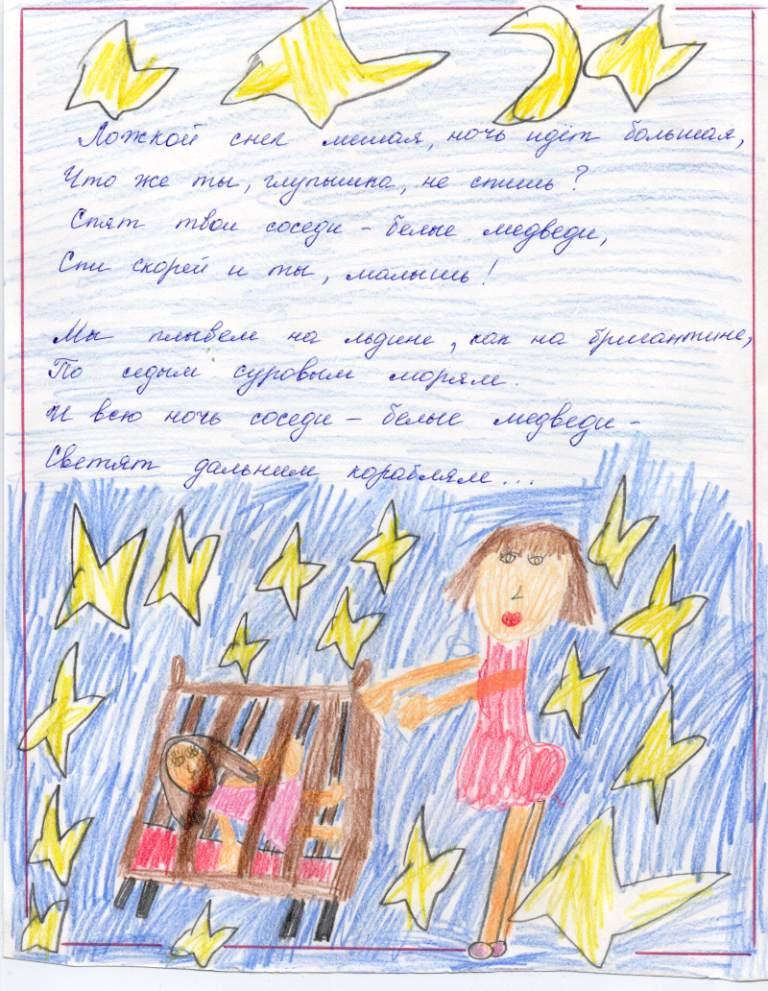 Ложкой снег мешая, ночь идёт большая,
Что же ты, глупышка, не спишь?
Спят твои соседи - белые медведи,
Спи скорей и ты, малышь!
Мы плывем на льдине, как на бригантине,
По седым суровым морям.
И всю ночь соседи - белые медведи -
Светят дальним кораблям...